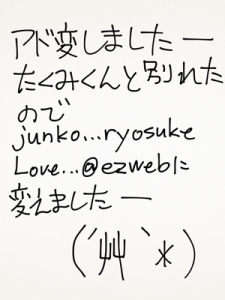 アド変しました ー
たくみくんと別れた
ので
junko...ryosuke
Love...@ezwebに
変えました ー
(´艸｀*)